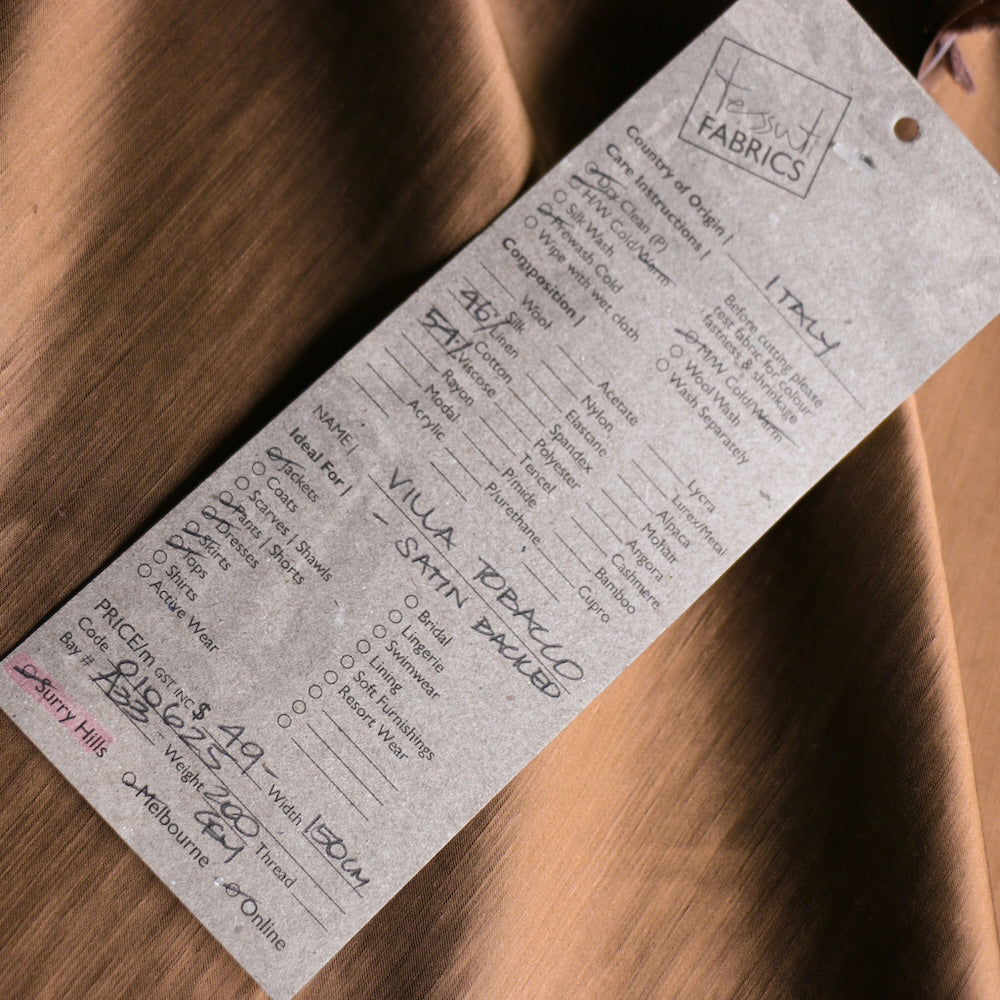 Tessuti
FABRICS
Country of Origin | ITALY
Care Instructions |
Dry Clean (P)
H/W Cold/Warm
Silk Wash
Prewash Cold
Wipe with wet cloth
Before cutting please
test fabric for colour
fastness & shrinkage
H/W Cold/Warm
Wool Wash
Wash Separately
Composition |
Wool
Silk
46% Linen
54% Cotton
Viscose
Rayon
Modal
Acrylic
Acetate
Nylon
Elastane
Spandex
Polyester
Tencel
P/mide
P/urethane
Lycra
Lurex/Metal
Alpaca
Mohair
Angora
Cashmere
Bamboo
Cupro
NAME | VILLA TOBACCO
- SATIN BACKED
Ideal For |
Jackets
Coats
Scarves | Shawls
Pants | Shorts
Dresses
Skirts
Tops
Shirts
Active Wear
Bridal
Lingerie
Swimwear
Lining
Soft Furnishings
Resort Wear
PRICE/m GST INC $ 49- Width 150CM
Code 010625 Weight 200 GSM Thread
Bay # A33
Surry Hills
Melbourne
Online